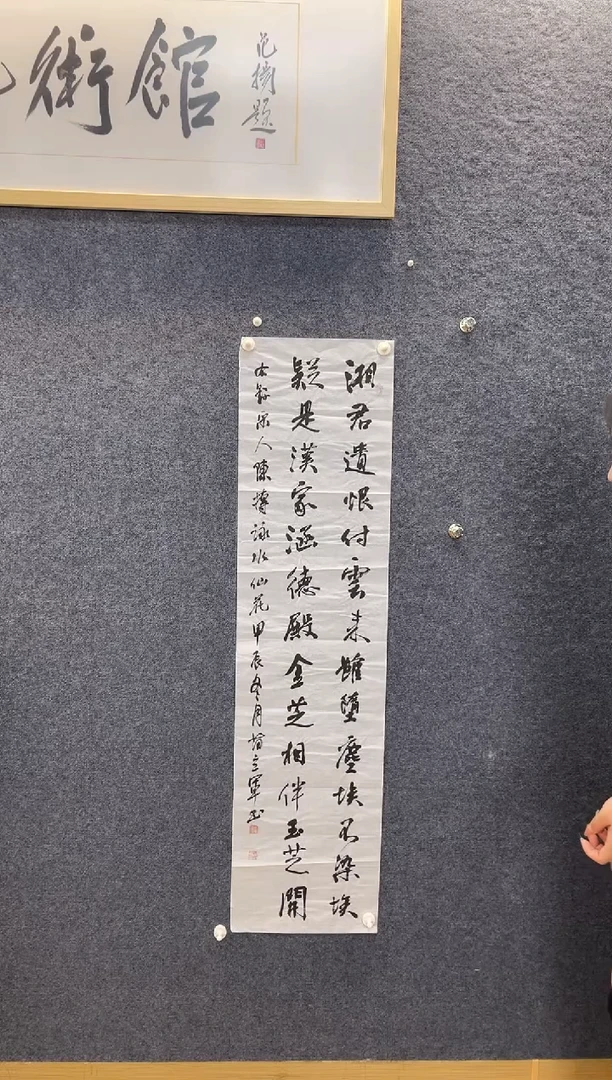 術館
范揚题
湘君遺恨付雲来雖墮塵埃不染埃
疑是漢家涵德殿金芝相伴玉芝開
右錄宋人陳摶詠水仙花甲辰冬月立軍书